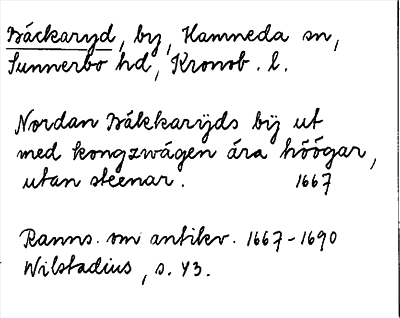 Bäckaryd, by, Hamneda sn,
Sunnerbo hd, Kronob. l.
Nordan Bäkkarÿds bÿ ut
med kongzwägen ära höögar,
utan steenar. 1667
Ranns. om antikv. 1667-1690
Wilstadius, s. 43.